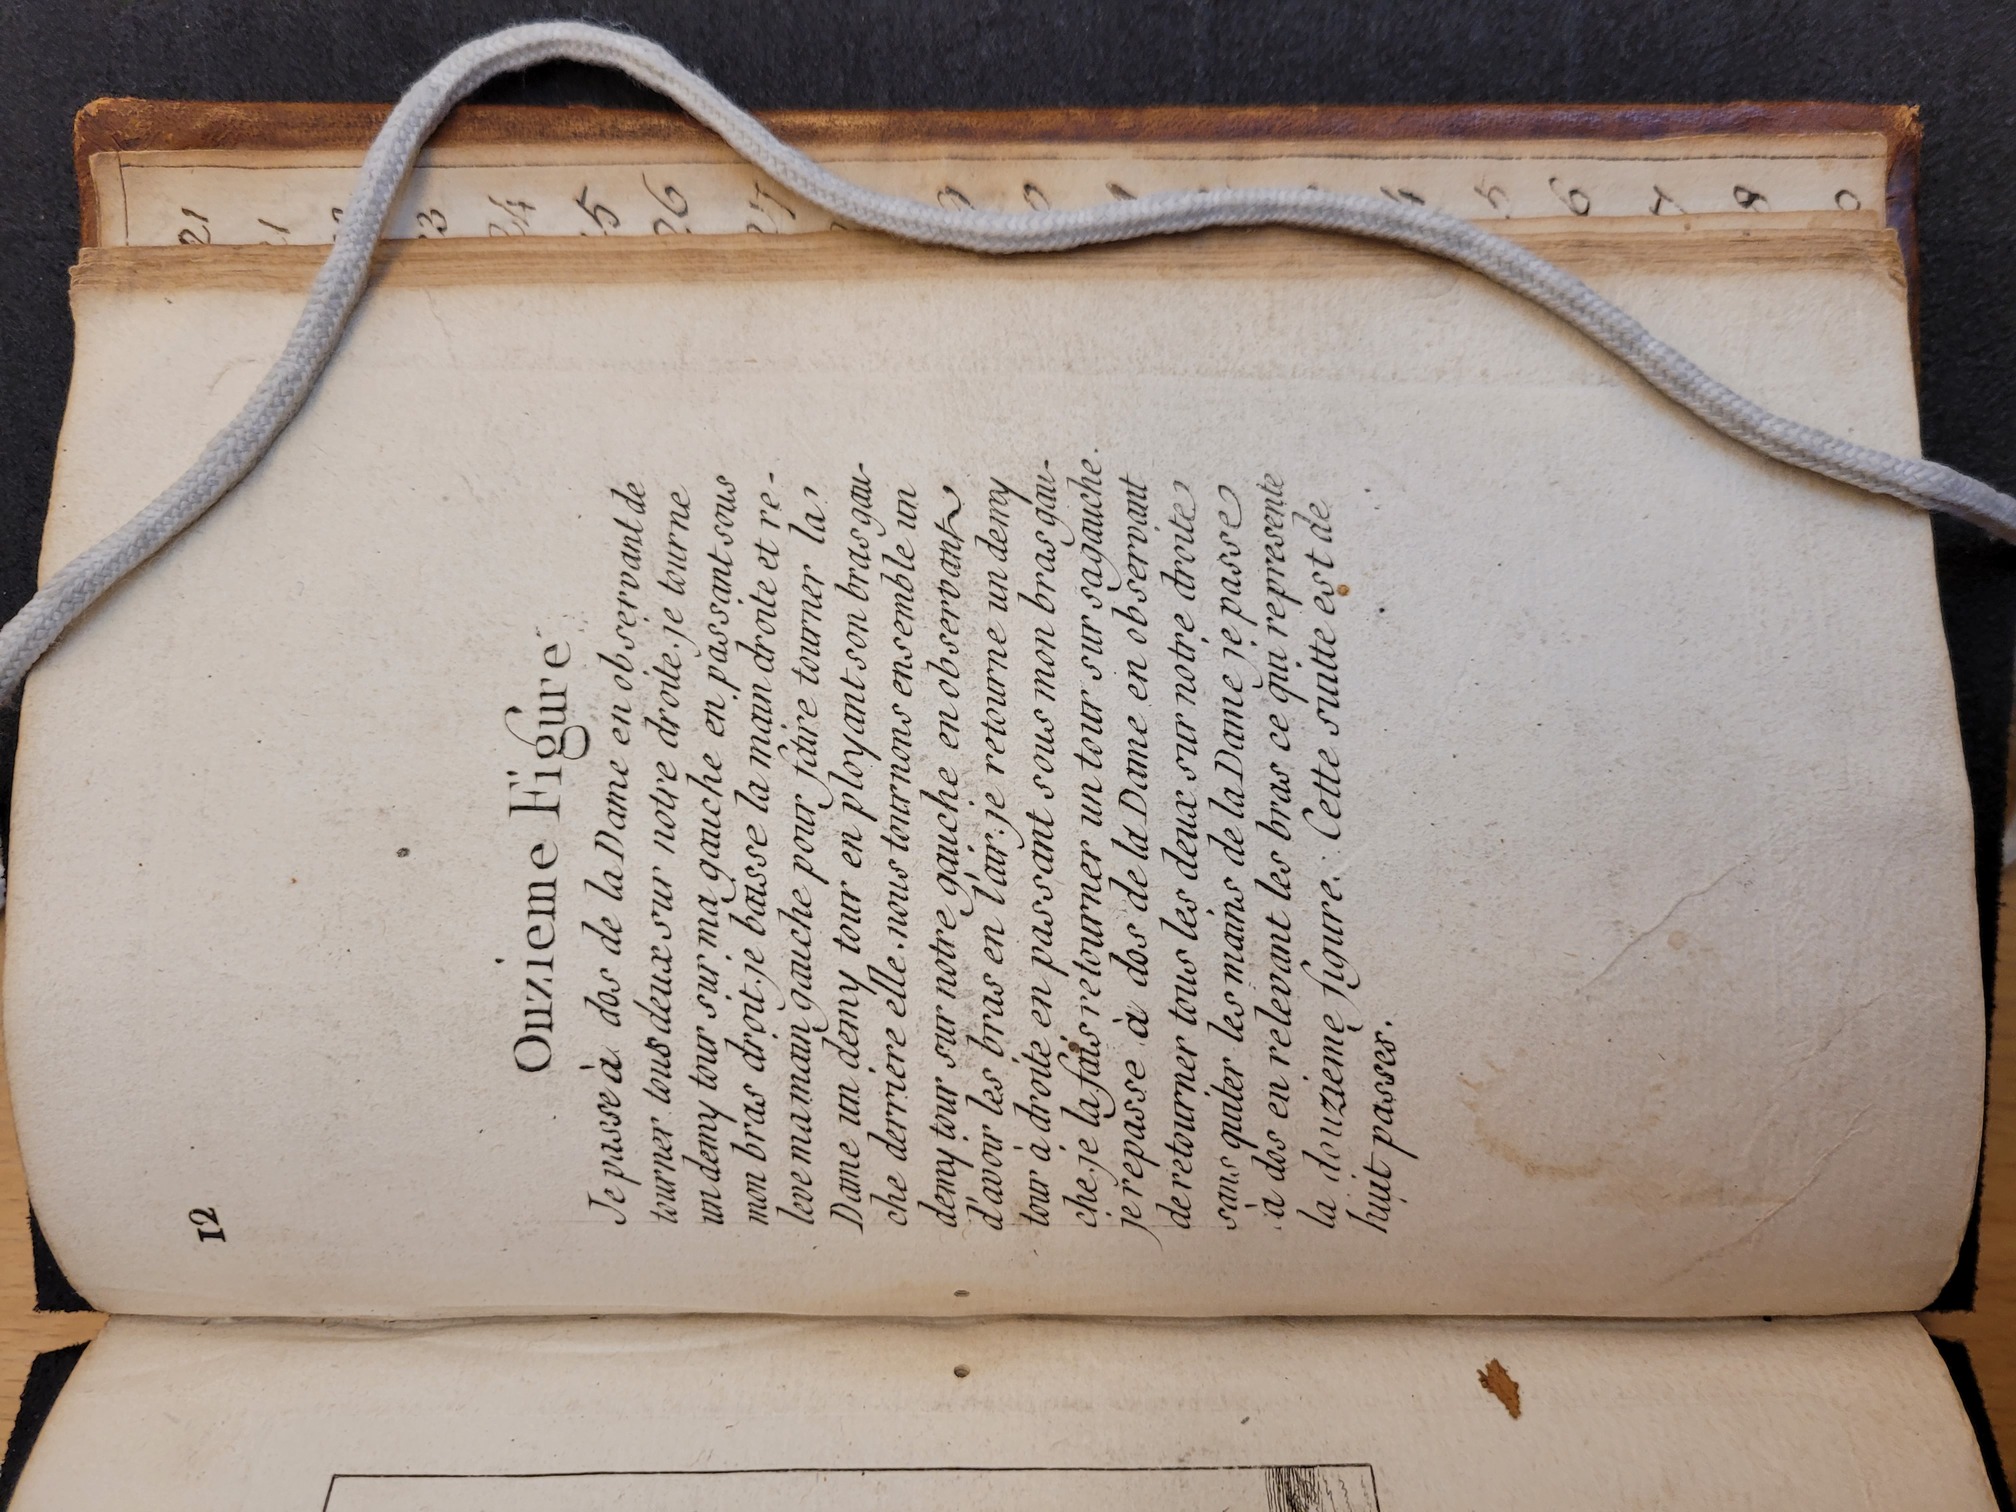 12
Onzieme Figure
Je passe à dos de la Dame en observant de
tourner tous deux sur notre droite. je tourne
un demy tour sur ma gauche en passant sous
mon bras droit. je baisse la main droite et re-
leve ma main gauche pour faire tourner la
Dame un demy tour en ployant son bras gau-
che derriere elle. nous tournons ensemble un
demy tour sur notre gauche en observant
d'avoir les bras en l'air. je retourne un demy
tour à droite en passant sous mon bras gau-
che. je la fais retourner un tour sur sa gauche.
je repasse à dos de la Dame en observant
de retourner tous les deux sur notre droite
sans quiter les mains de la Dame je passe
à dos en relevant les bras ce qui represente
la douzieme figure. Cette suitte est de
huit passes.
21
23
24
26
5
6
7
8